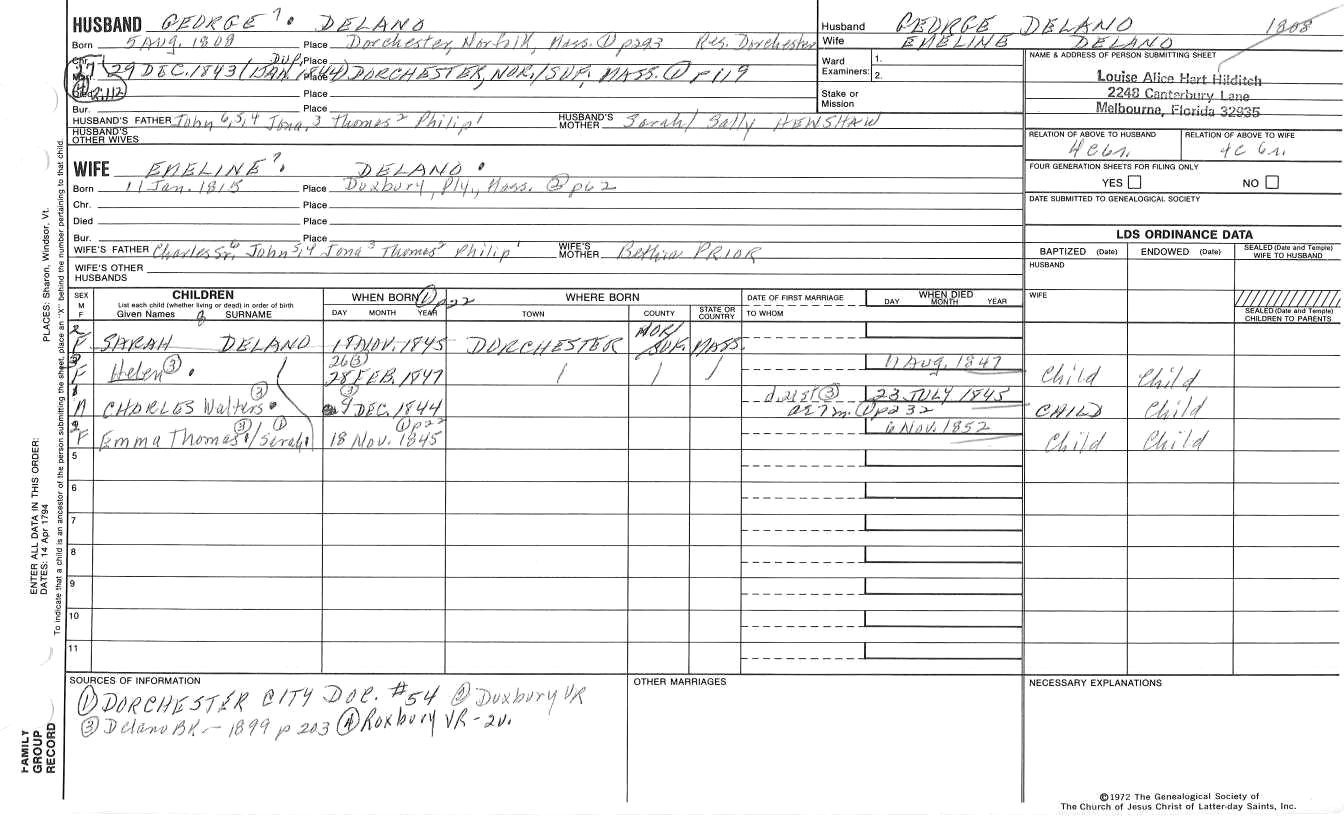 HUSBAND GEORGE 7. DELANO
Born 5 AUG. 1808 Place Dorchester, Norfolk, Mass. ① p293 Res. Dorchester
Chr. Place
27 29 DEC. 1843 (1 JAN. 1844) Dup. DORCHESTER, NOR./SUF. MASS. ① p119
④ 2:112 Place
Bur. Place
HUSBAND'S FATHER John 6,5,4 Jona. 3 Thomas 2 Philip 1 HUSBAND'S MOTHER Sarah/Sally HENSHAW
HUSBAND'S OTHER WIVES
WIFE EMELINE 7. DELANO.
Born 11 Jan. 1815 Place Duxbury, Ply., Mass. ② p62
Chr. Place
Died Place
Bur. Place
WIFE'S FATHER Charles Sr. 6 John 5,4 Jona 3 Thomas 2 Philip 1 WIFE'S MOTHER Bethia PRIOR
WIFE'S OTHER HUSBANDS
Husband GEORGE DELANO 1808
Wife EMELINE DELANO
Ward Examiners: 1. 2.
Stake or Mission
NAME & ADDRESS OF PERSON SUBMITTING SHEET
Louise Alice Hart Hilditch
2248 Canterbury Lane
Melbourne, Florida 32935
RELATION OF ABOVE TO HUSBAND RELATION OF ABOVE TO WIFE
4C 6r. 4C 6r.
FOUR GENERATION SHEETS FOR FILING ONLY
YES NO
DATE SUBMITTED TO GENEALOGICAL SOCIETY
LDS ORDINANCE DATA
BAPTIZED (Date) ENDOWED (Date) SEALED (Date and Temple) WIFE TO HUSBAND
HUSBAND
WIFE
SEALED (Date and Temple) CHILDREN TO PARENTS
SEX M F CHILDREN WHEN BORN ① p22 WHERE BORN DATE OF FIRST MARRIAGE WHEN DIED
List each child (whether living or dead) in order of birth
Given Names 8 SURNAME DAY MONTH YEAR TOWN COUNTY STATE OR COUNTRY TO WHOM DAY MONTH YEAR
2 F SARAH DELANO 18 NOV. 1845 DORCHESTER NOR/SUF. MASS.
3 F Helen ③. 26 ③ 28 FEB. 1847 11 Aug. 1847 Child Child
1 M CHARLES Walters ③. ③ 9 DEC. 1844 ③ 23 JULY 1845 ① p232 CHILD Child
2 F Emma Thomas ③/Sarah ① 18 Nov. 1845 ① p22 6 Nov. 1852 Child Child
5
6
7
8
9
10
11
SOURCES OF INFORMATION
① DORCHESTER CITY DOC. #54 ② Duxbury VR
③ Delano BK. – 1899 p 203 ④ Roxbury VR - 2v.
OTHER MARRIAGES
NECESSARY EXPLANATIONS
©1972 The Genealogical Society of
The Church of Jesus Christ of Latter-day Saints, Inc.
PLACES: Sharon, Windsor, Vt.
ENTER ALL DATA IN THIS ORDER:
DATES: 14 Apr 1794
To indicate that a child is an ancestor of the person submitting the sheet, place an "X" behind the number pertaining to that child.
FAMILY
GROUP
RECORD